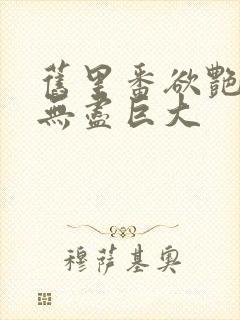 舊里番欲艷
無盡巨大
穆薩基奧